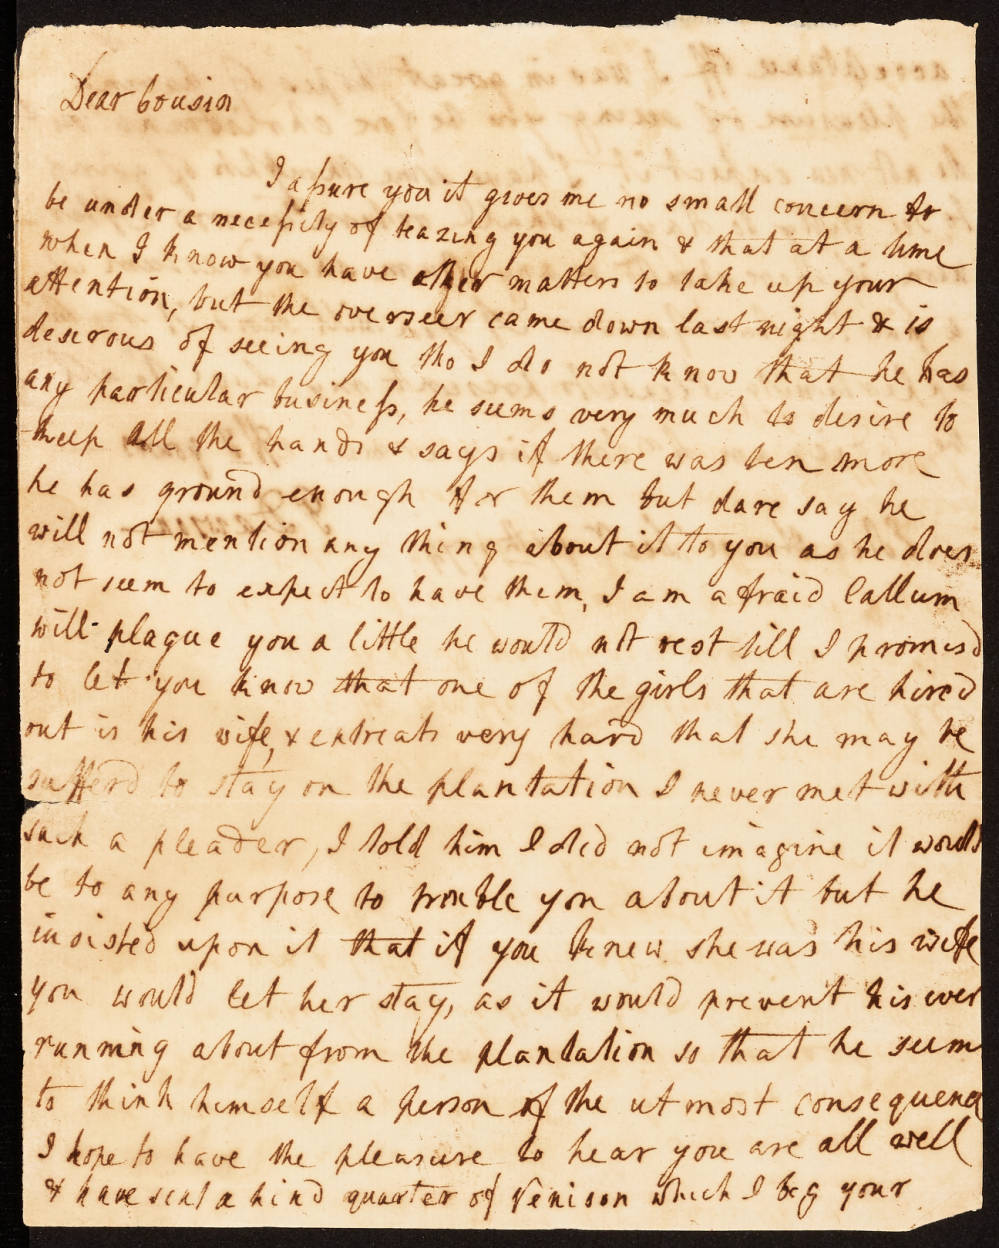 Dear Cousin
I assure you it gives me no small concern to
be under a necessity of teazing you again & that at a time
when I know you have other matters to take up your
attention, but the overseer came down last night & is
desirous of seeing you tho I do not know that he has
any particular business, he seems very much to desire to
keep all the hands & says if there was ten more
he has ground enough for them but dare say he
will not mention any thing about it to you as he does
not seem to expect to have them, I am afraid Callum
will plague you a little he would not rest till I promis'd
to let you know that one of the girls that are hired
out is his wife, & entreats very hard that she may be
sufferd to stay on the plantation I never met with
such a pleader, I told him I did not imagine it would
be to any purpose to trouble you about it but he
insisted upon it that if you knew she was his wife
you would let her stay, as it would prevent his ever
running about from the plantation so that he seem
to think himself a person of the utmost consequence
I hope to have the pleasure to hear you are all well
& have sent a hind quarter of Venison which I beg your